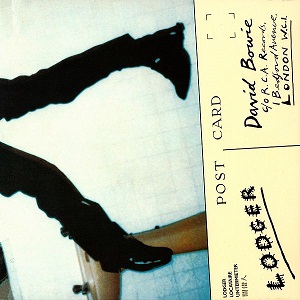 POST CARD
David Bowie
c/o R.C.A. Records,
1 Bedford Avenue,
LONDON W.C.1.
LODGER
LODGER
LOCATAIRE
UNTERMIETER